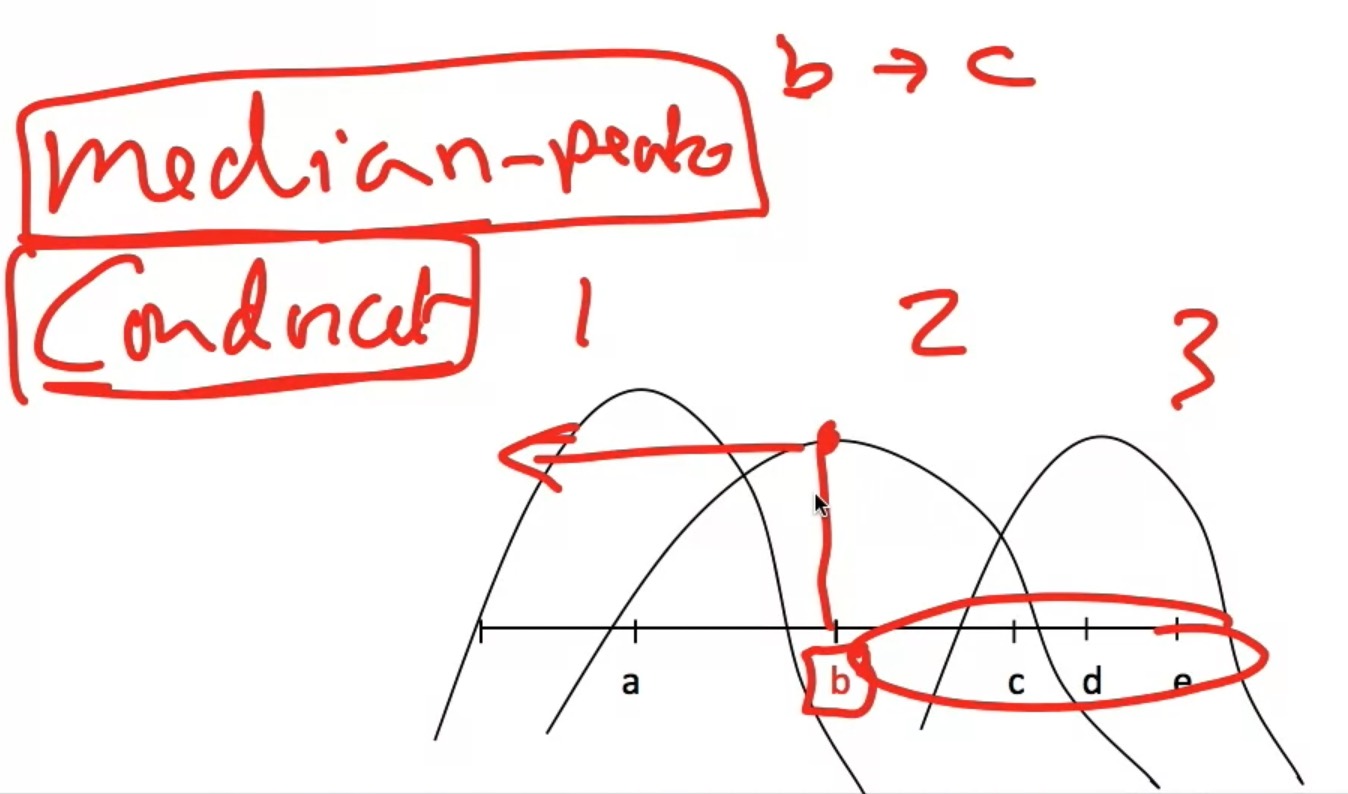 b → c
median-peak
Condorcet
1 2 3
a b c d e